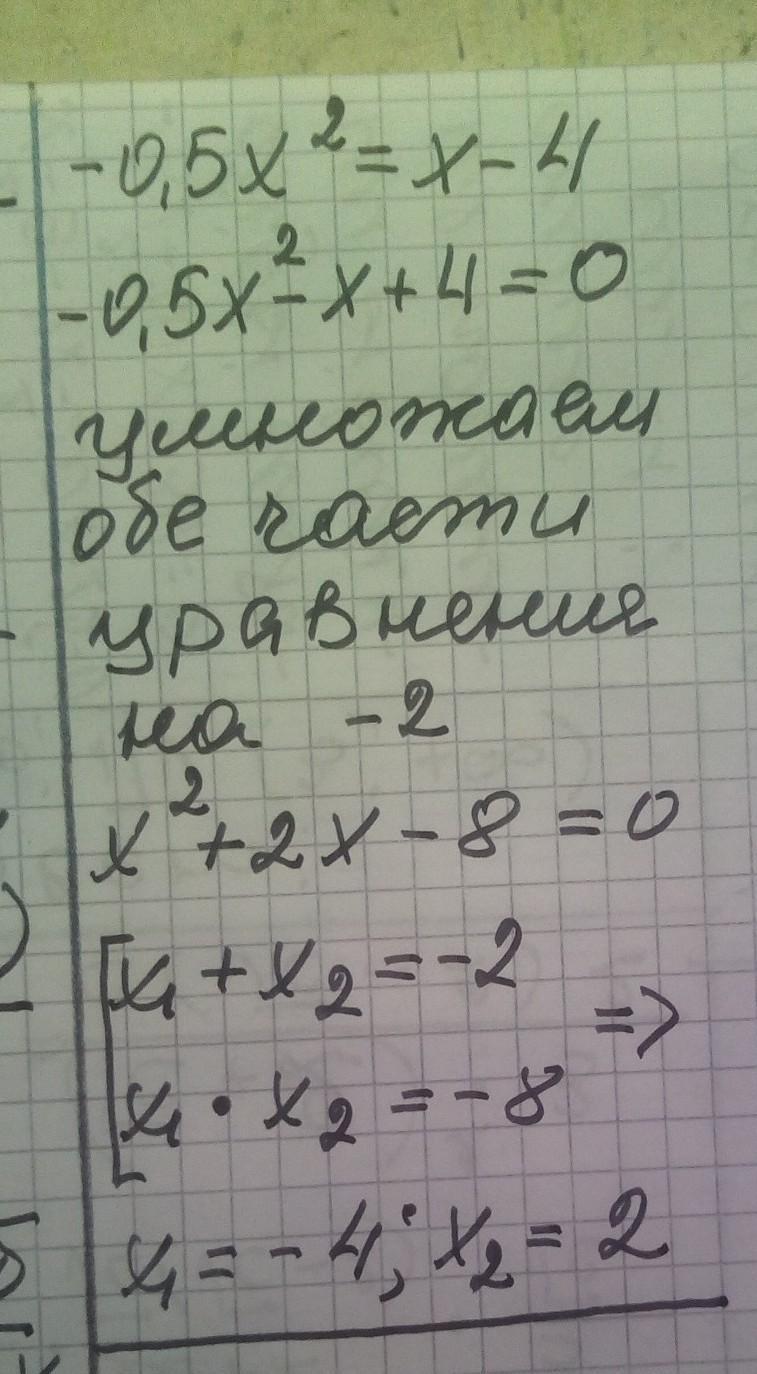 -0,5x² = x - 4
-0,5x² - x + 4 = 0
умножаем
обе части
уравнения
на -2
x² + 2x - 8 = 0
[x₁ + x₂ = -2
x₁ · x₂ = -8 =>
x₁ = -4; x₂ = 2